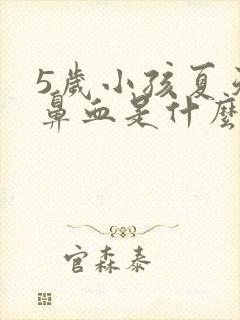 5歲小孩夏天
鼻血是什麼
官森泰